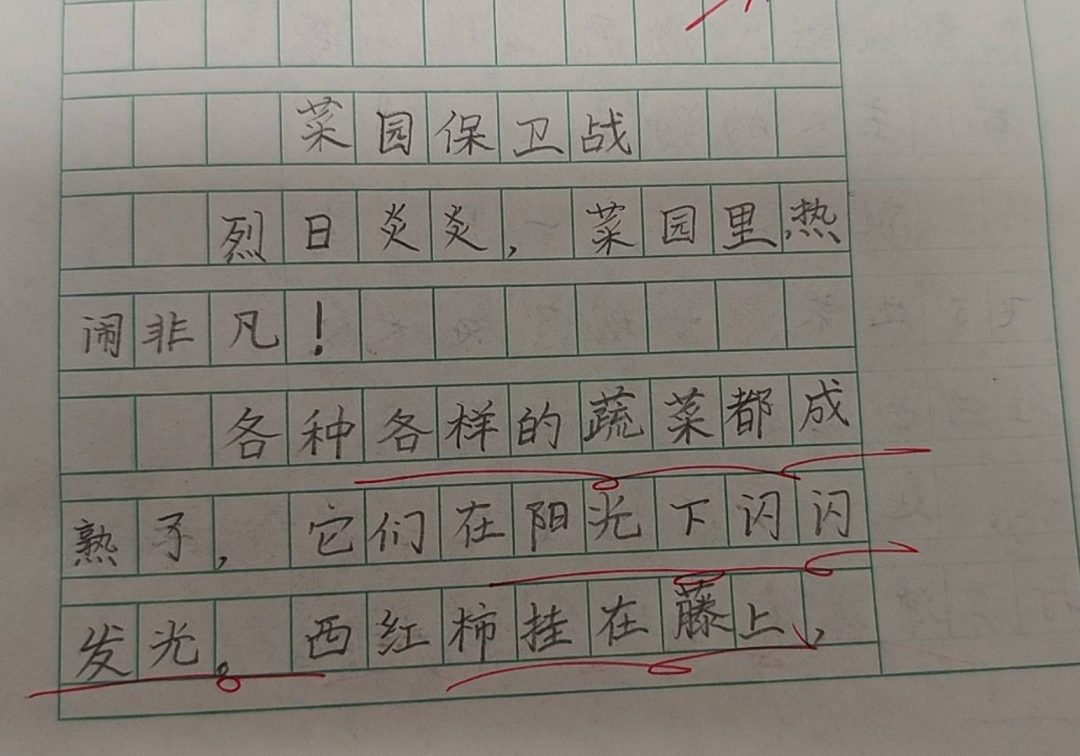 菜园保卫战
烈日炎炎，菜园里热
闹非凡！
各种各样的蔬菜都成
熟了，它们在阳光下闪闪
发光。西红柿挂在藤上，